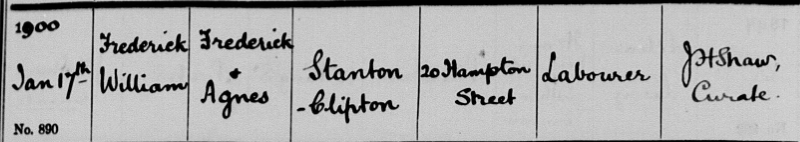 1900
Jan 17th
No. 890
Frederick
William
Frederick
+
Agnes
Stanton
-Clipton
20 Hampton
Street
Labourer
J H Shaw,
Curate.